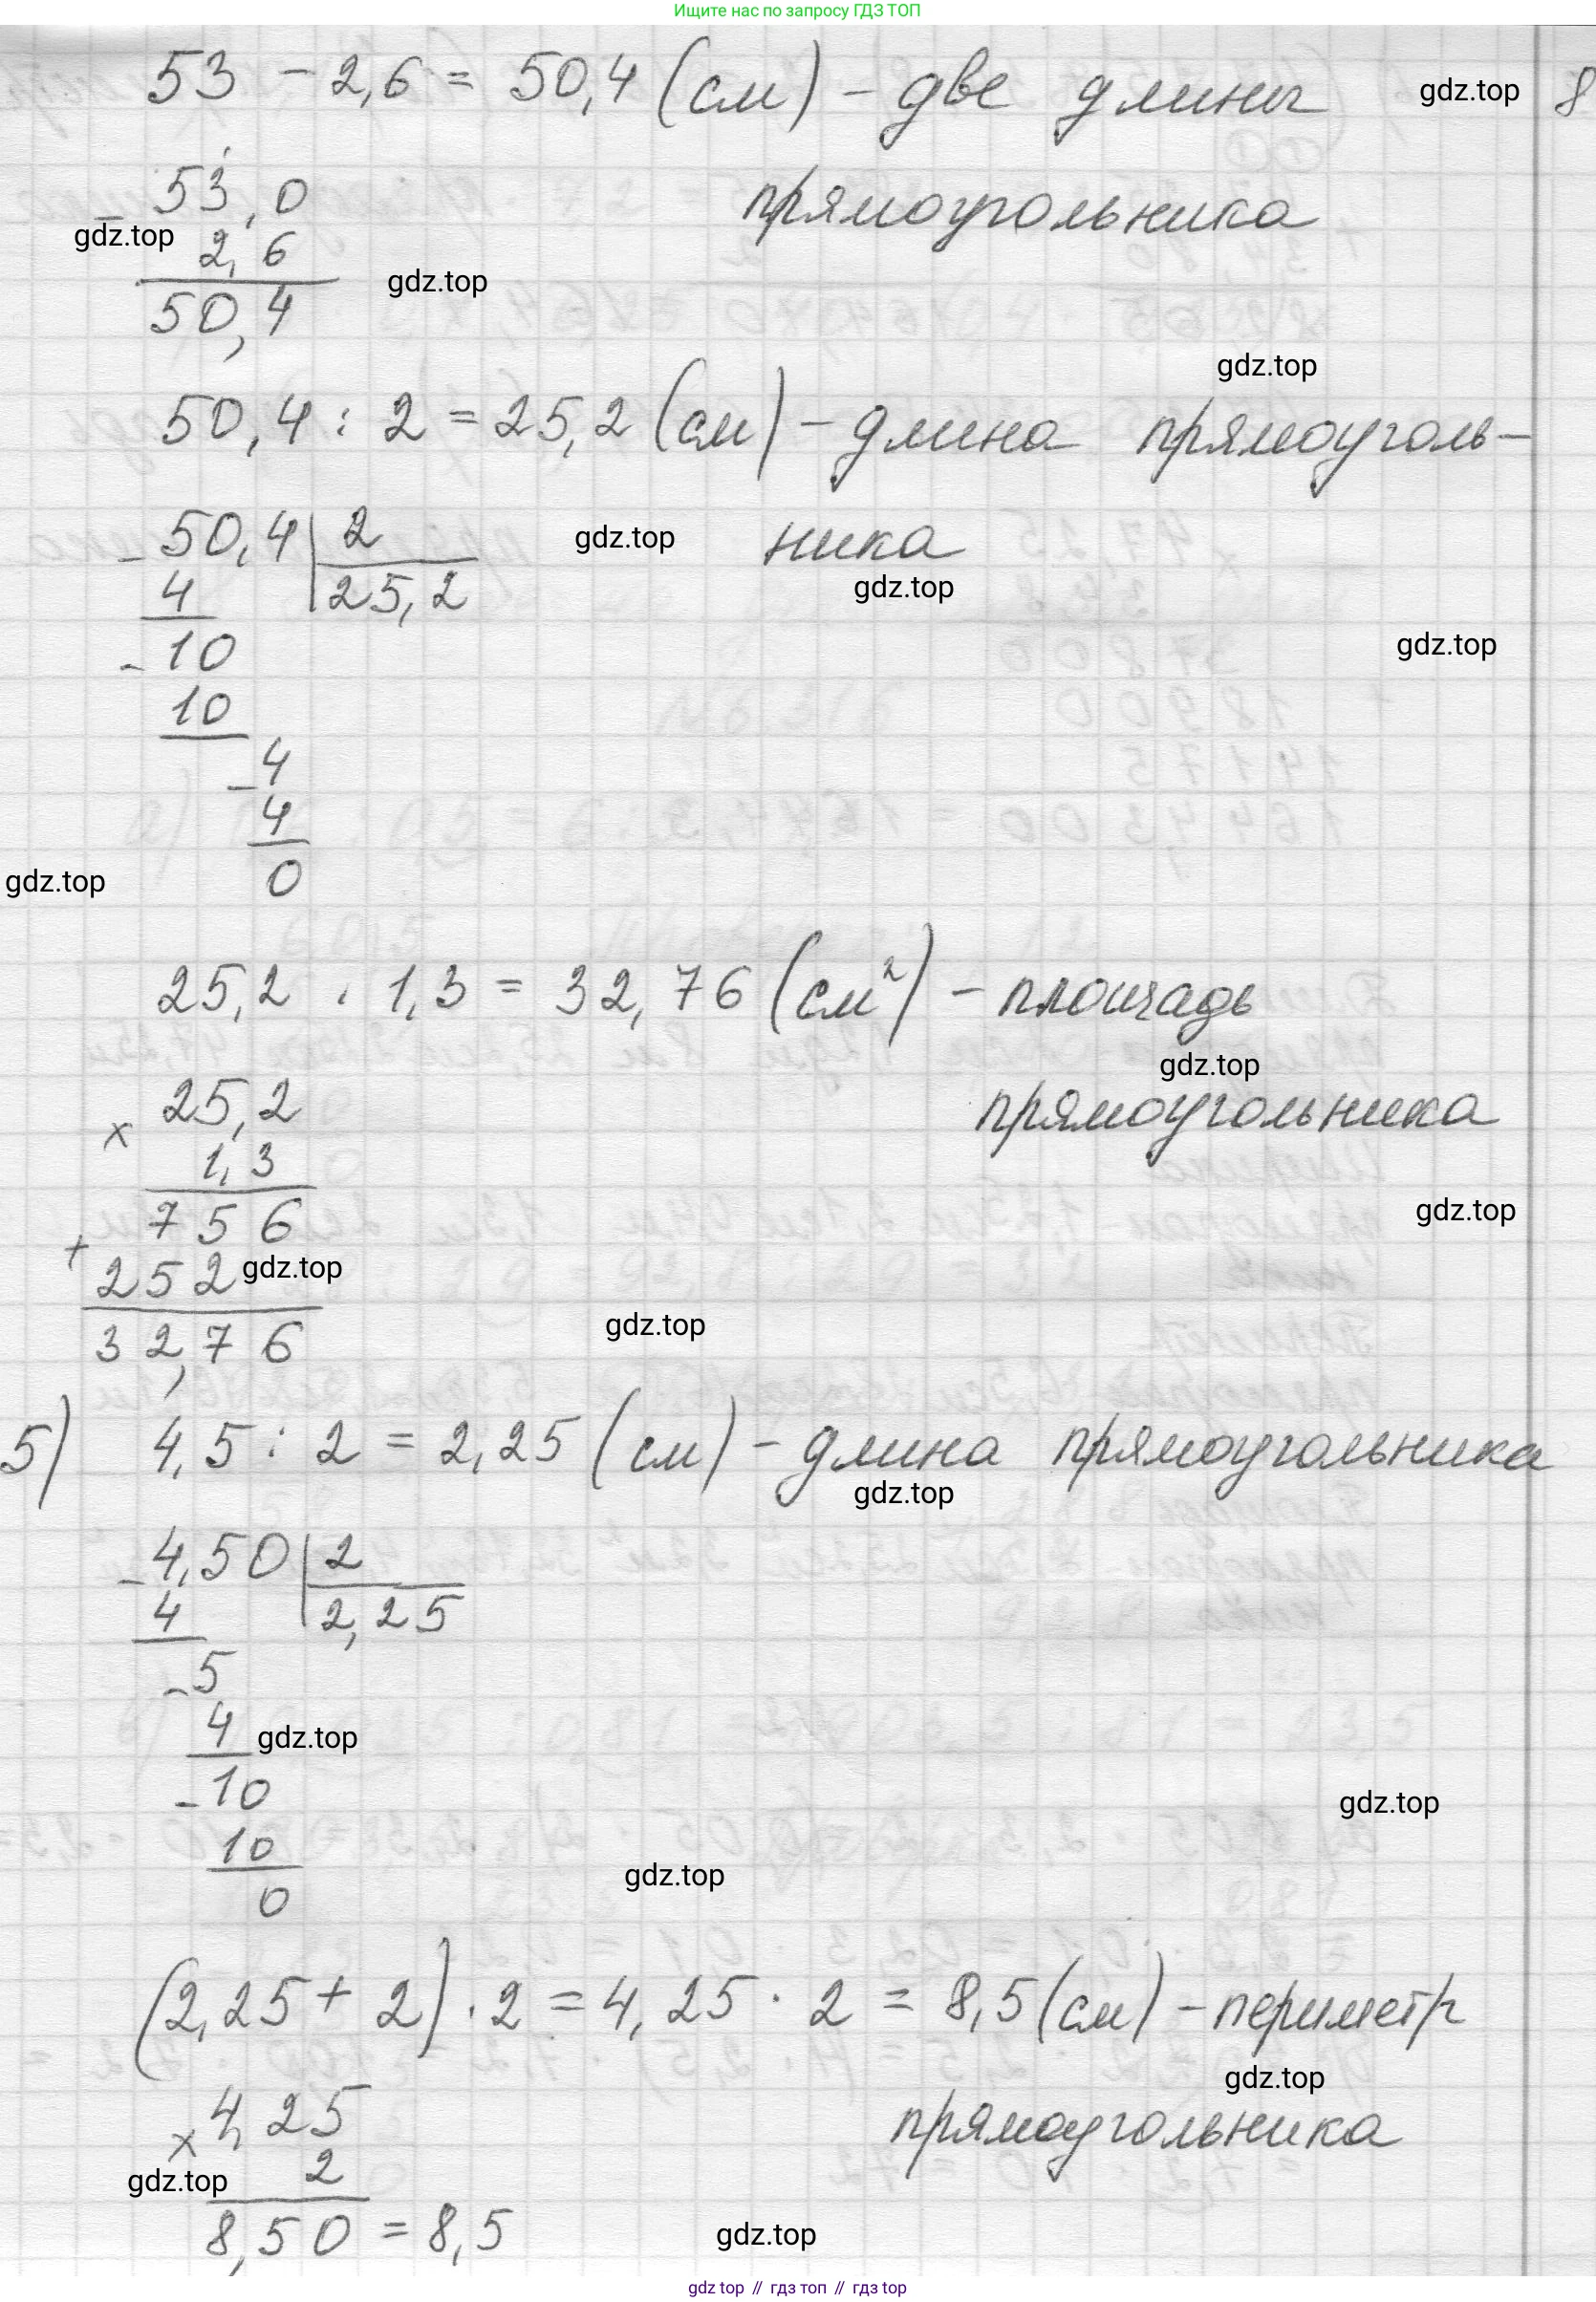 Ищите нас по запросу ГДЗ ТОП
53 - 2,6 = 50,4 (см) - две длины
gdz.top
8
53,0
прямоугольника
-
gdz.top
2,6
gdz.top
50,4
gdz.top
50,4 : 2 = 25,2 (см) - длина прямоуголь-
- 50,4 | 2
gdz.top
ника
gdz.top
4
25,2
- 10
gdz.top
10
- 4
4
gdz.top
0
25,2 · 1,3 = 32,76 (см²) - площадь
gdz.top
× 25,2
прямоугольника
1,3
756
gdz.top
+
252
gdz.top
gdz.top
32,76
5) 4,5 : 2 = 2,25 (см) - длина прямоугольника
gdz.top
- 4,50 | 2
4
2,25
- 5
4
gdz.top
- 10
gdz.top
10
gdz.top
0
(2,25 + 2) · 2 = 4,25 · 2 = 8,5 (см) - периметр
gdz.top
× 4,25
прямоугольника
gdz.top
2
8,50 = 8,5
gdz.top
gdz top // гдз топ // гдз top